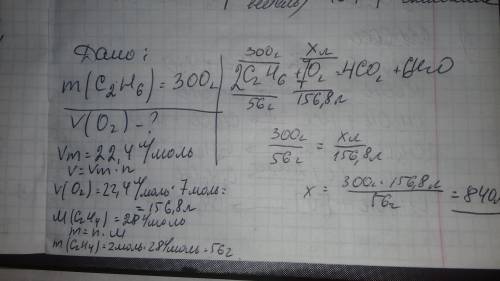 Дано:
m(C₂H₆) = 300г
V(O₂) - ?
Vm = 22,4 л/моль
V = Vm · n
V(O₂) = 22,4 л/моль · 7 моль =
= 156,8 л
M(C₂H₄) = 28 г/моль
m = n · M
m(C₂H₄) = 2 моль · 28 г/моль = 56г
300г xл
2C₂H₆ + 7O₂ = 4CO₂ + 6H₂O
56г 156,8 л
300г / 56г = xл / 156,8 л
x = 300г · 156,8 л / 56г = 840л